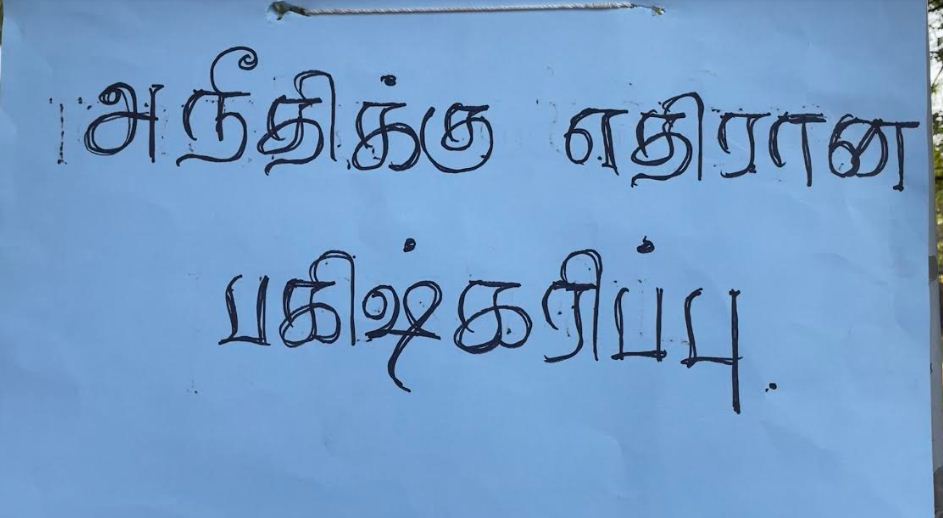 அநீதிக்கு எதிரான
பகிஷ்கரிப்பு.